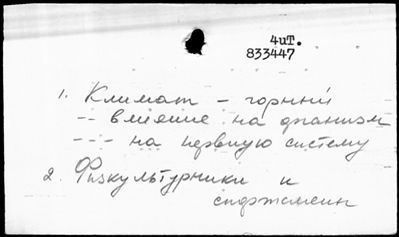 4иТ.
833447
1. Климат - горный
-- влияние на организм
--- на нервную систему
2. Физкультурники и
спортсмены